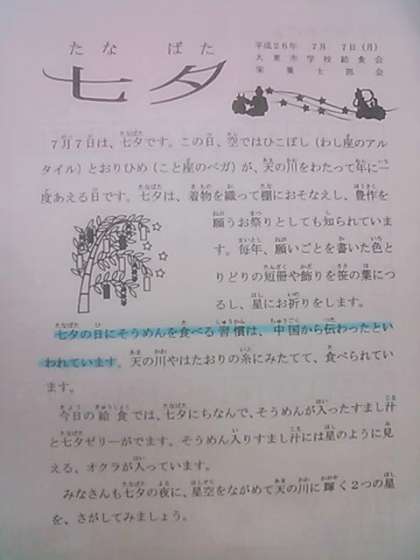 たな ばた
七夕
平成26年 7月 7日(月)
大東市学校給食会
栄養士部会
7月7日は、七夕です。この日、空ではひこぼし(わし座のアル
タイル)とおりひめ(こと座のベガ)が、天の川をわたって年に一
度あえる日です。七夕は、着物を織って棚におそなえし、豊作を
願うお祭りとしても知られていま
す。毎年、願いごとを書いた色と
りどりの短冊や飾りを笹の葉につ
るし、星にお祈りをします。
七夕の日にそうめんを食べる習慣は、中国から伝わったとい
われています。天の川やはたおりの糸にみたてて、食べられてい
ます。
今日の給食では、七夕にちなんで、そうめんが入ったすまし汁
と七夕ゼリーがでます。そうめん入りすまし汁には星のように見
える、オクラが入っています。
みなさんも七夕の夜に、星空をながめて天の川に輝く2つの星
を、さがしてみましょう。